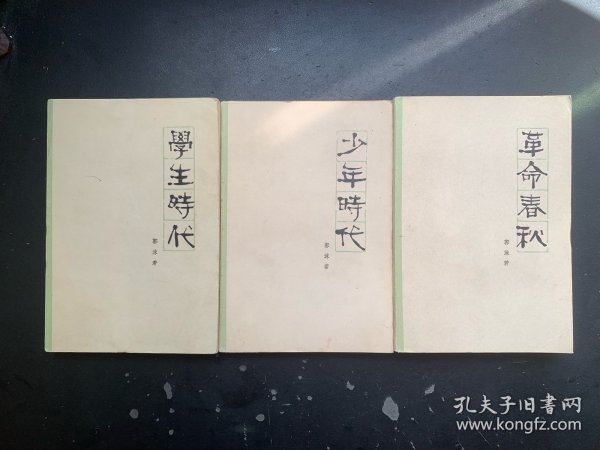 學生時代
郭沫若
少年時代
郭沫若
革命春秋
郭沫若
孔夫子旧书网
www.kongfz.com